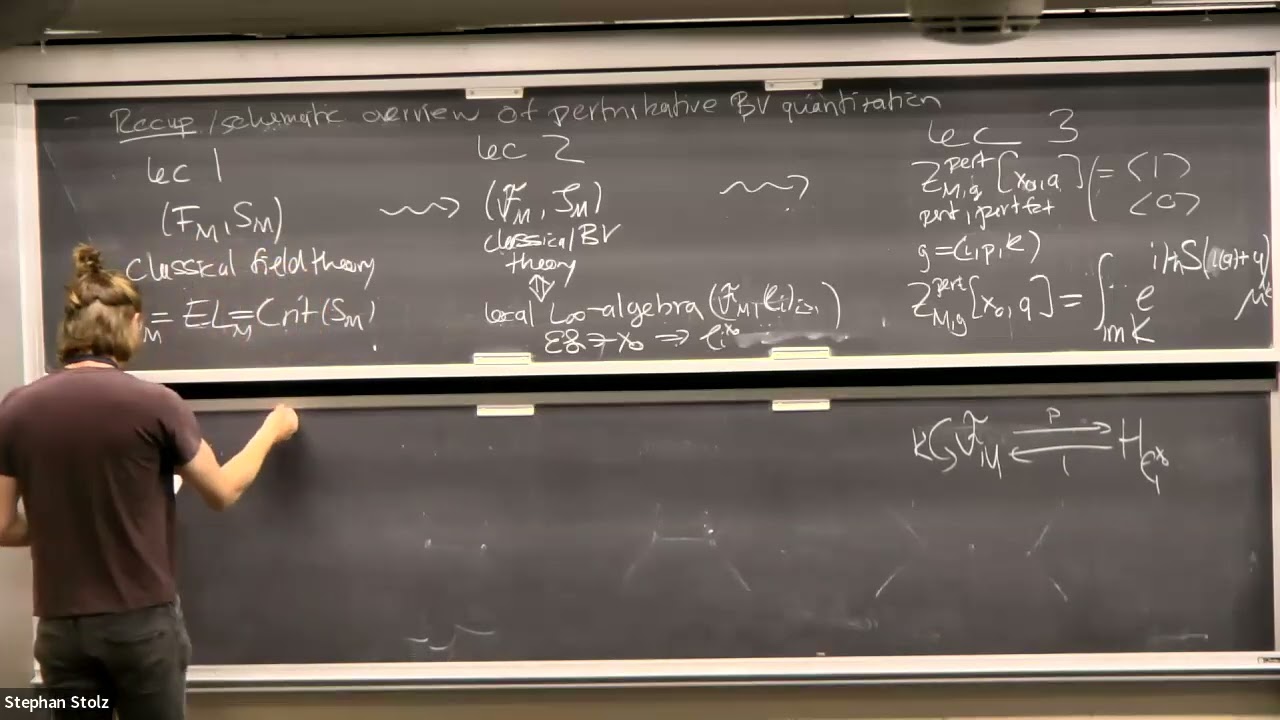 - Recap / schematic overview of perturbative BV quantization
Lec 1
(F_M, S_M)
Classical field theory
M = EL_M = Crit(S_M)
⇝
Lec 2
(𝓕_M, S_M)
classical BV
theory
⇕
local L∞-algebra (𝓕_M, ℓ_i)_{i≥1}
∋ x₀ ⇒ ℓ_i^{x₀}
⇝
Lec 3
Z^{pert}_{M,g}[x₀,a] = <1>
pert, pert fct <O>
g = (i,p,K)
Z^{pert}_{M,g}[x₀,a] = ∫_{im K} e^{i/ħ S(i(a)+
K 𝓕_M ⇄ H_{ℓ_1^{x₀}}
p
i
Stephan Stolz